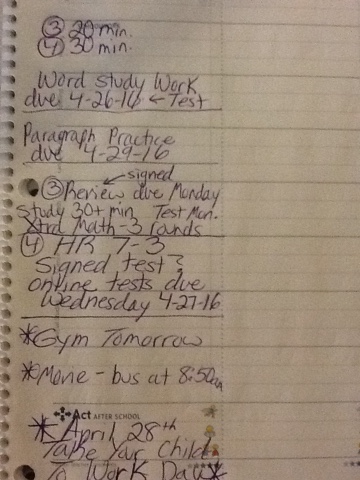 ③ 20 min.
④ 30 min.
Word Study Work
due 4-26-16 ← Test
Paragraph Practice
due 4-29-16
signed
③ Review due Monday
Study 30+ min Test Mon.
Xtra Math - 3 rounds
④ HR 7-3
Signed test &
online tests due
Wednesday 4-27-16
*Gym Tomorrow
*Movie - bus at 8:50am
Act AFTER SCHOOL
* April 28th
Take Your Child
To Work Day*